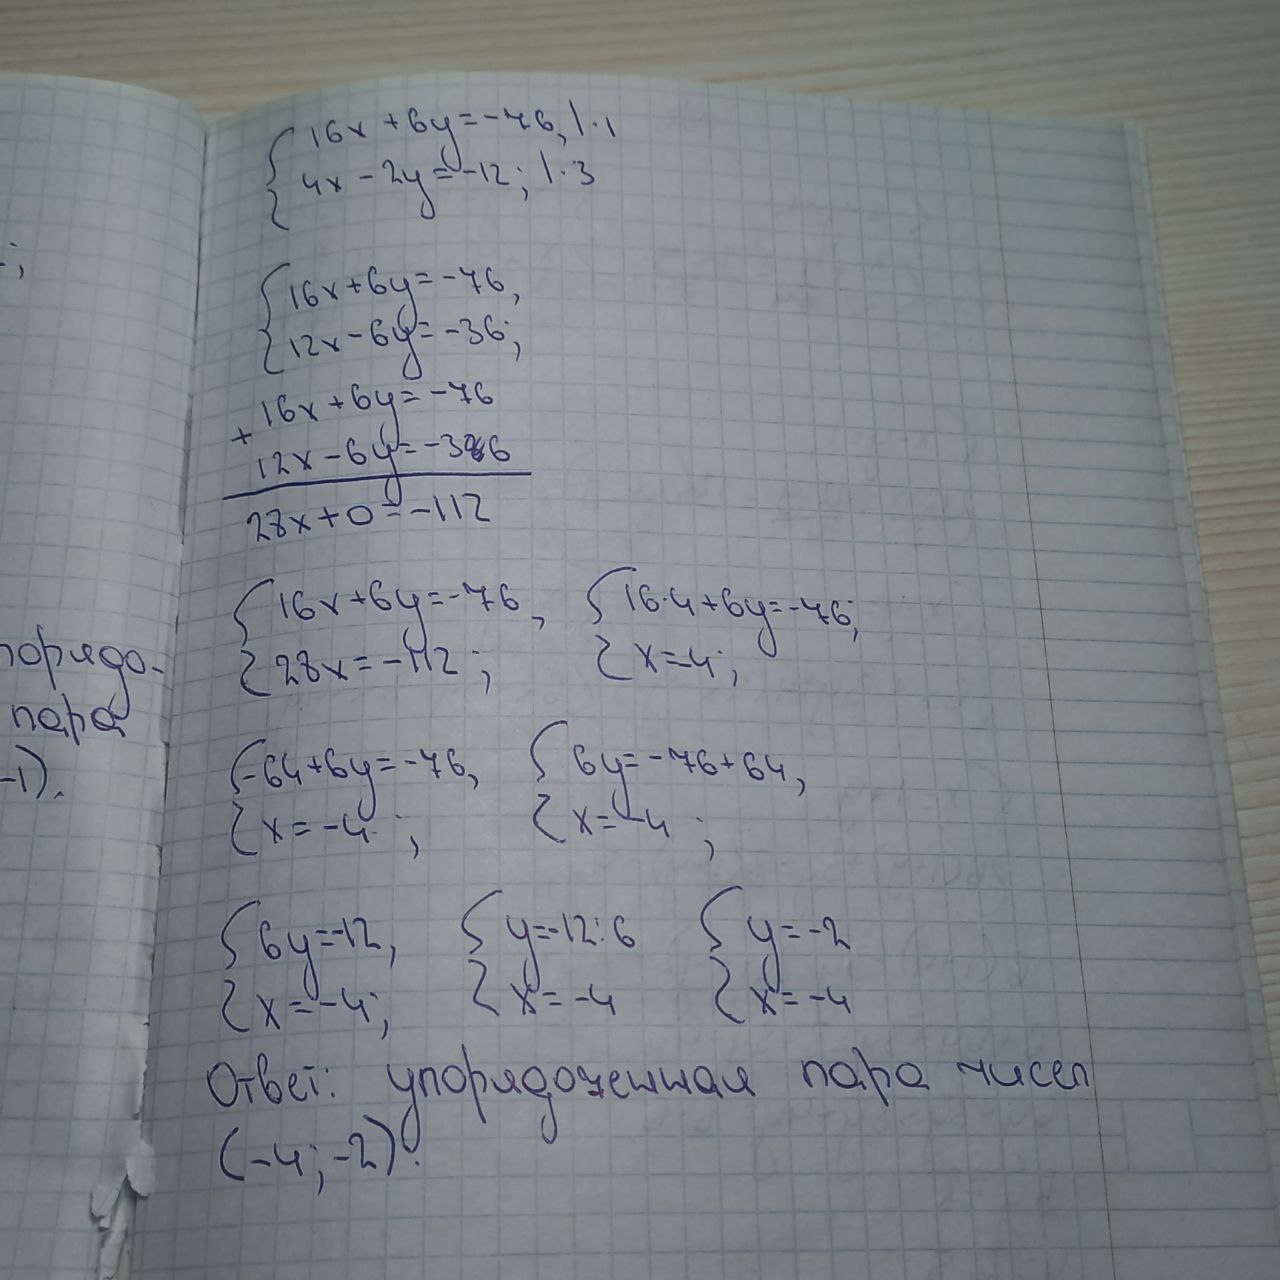 ;
порядо-
пара
-1).
{16x+6y=-76, |·1
4x-2y=-12; |·3
{16x+6y=-76,
12x-6y=-36;
+ 16x+6y=-76
12x-6y=-36
28x+0=-112
{16x+6y=-76, {16·4+6y=-76;
28x=-112; x=-4;
{-64+6y=-76, {6y=-76+64,
x=-4; x=-4;
{6y=-12, {y=-12:6 {y=-2
x=-4; x=-4 x=-4
Ответ: упорядоченная пара чисел
(-4;-2).